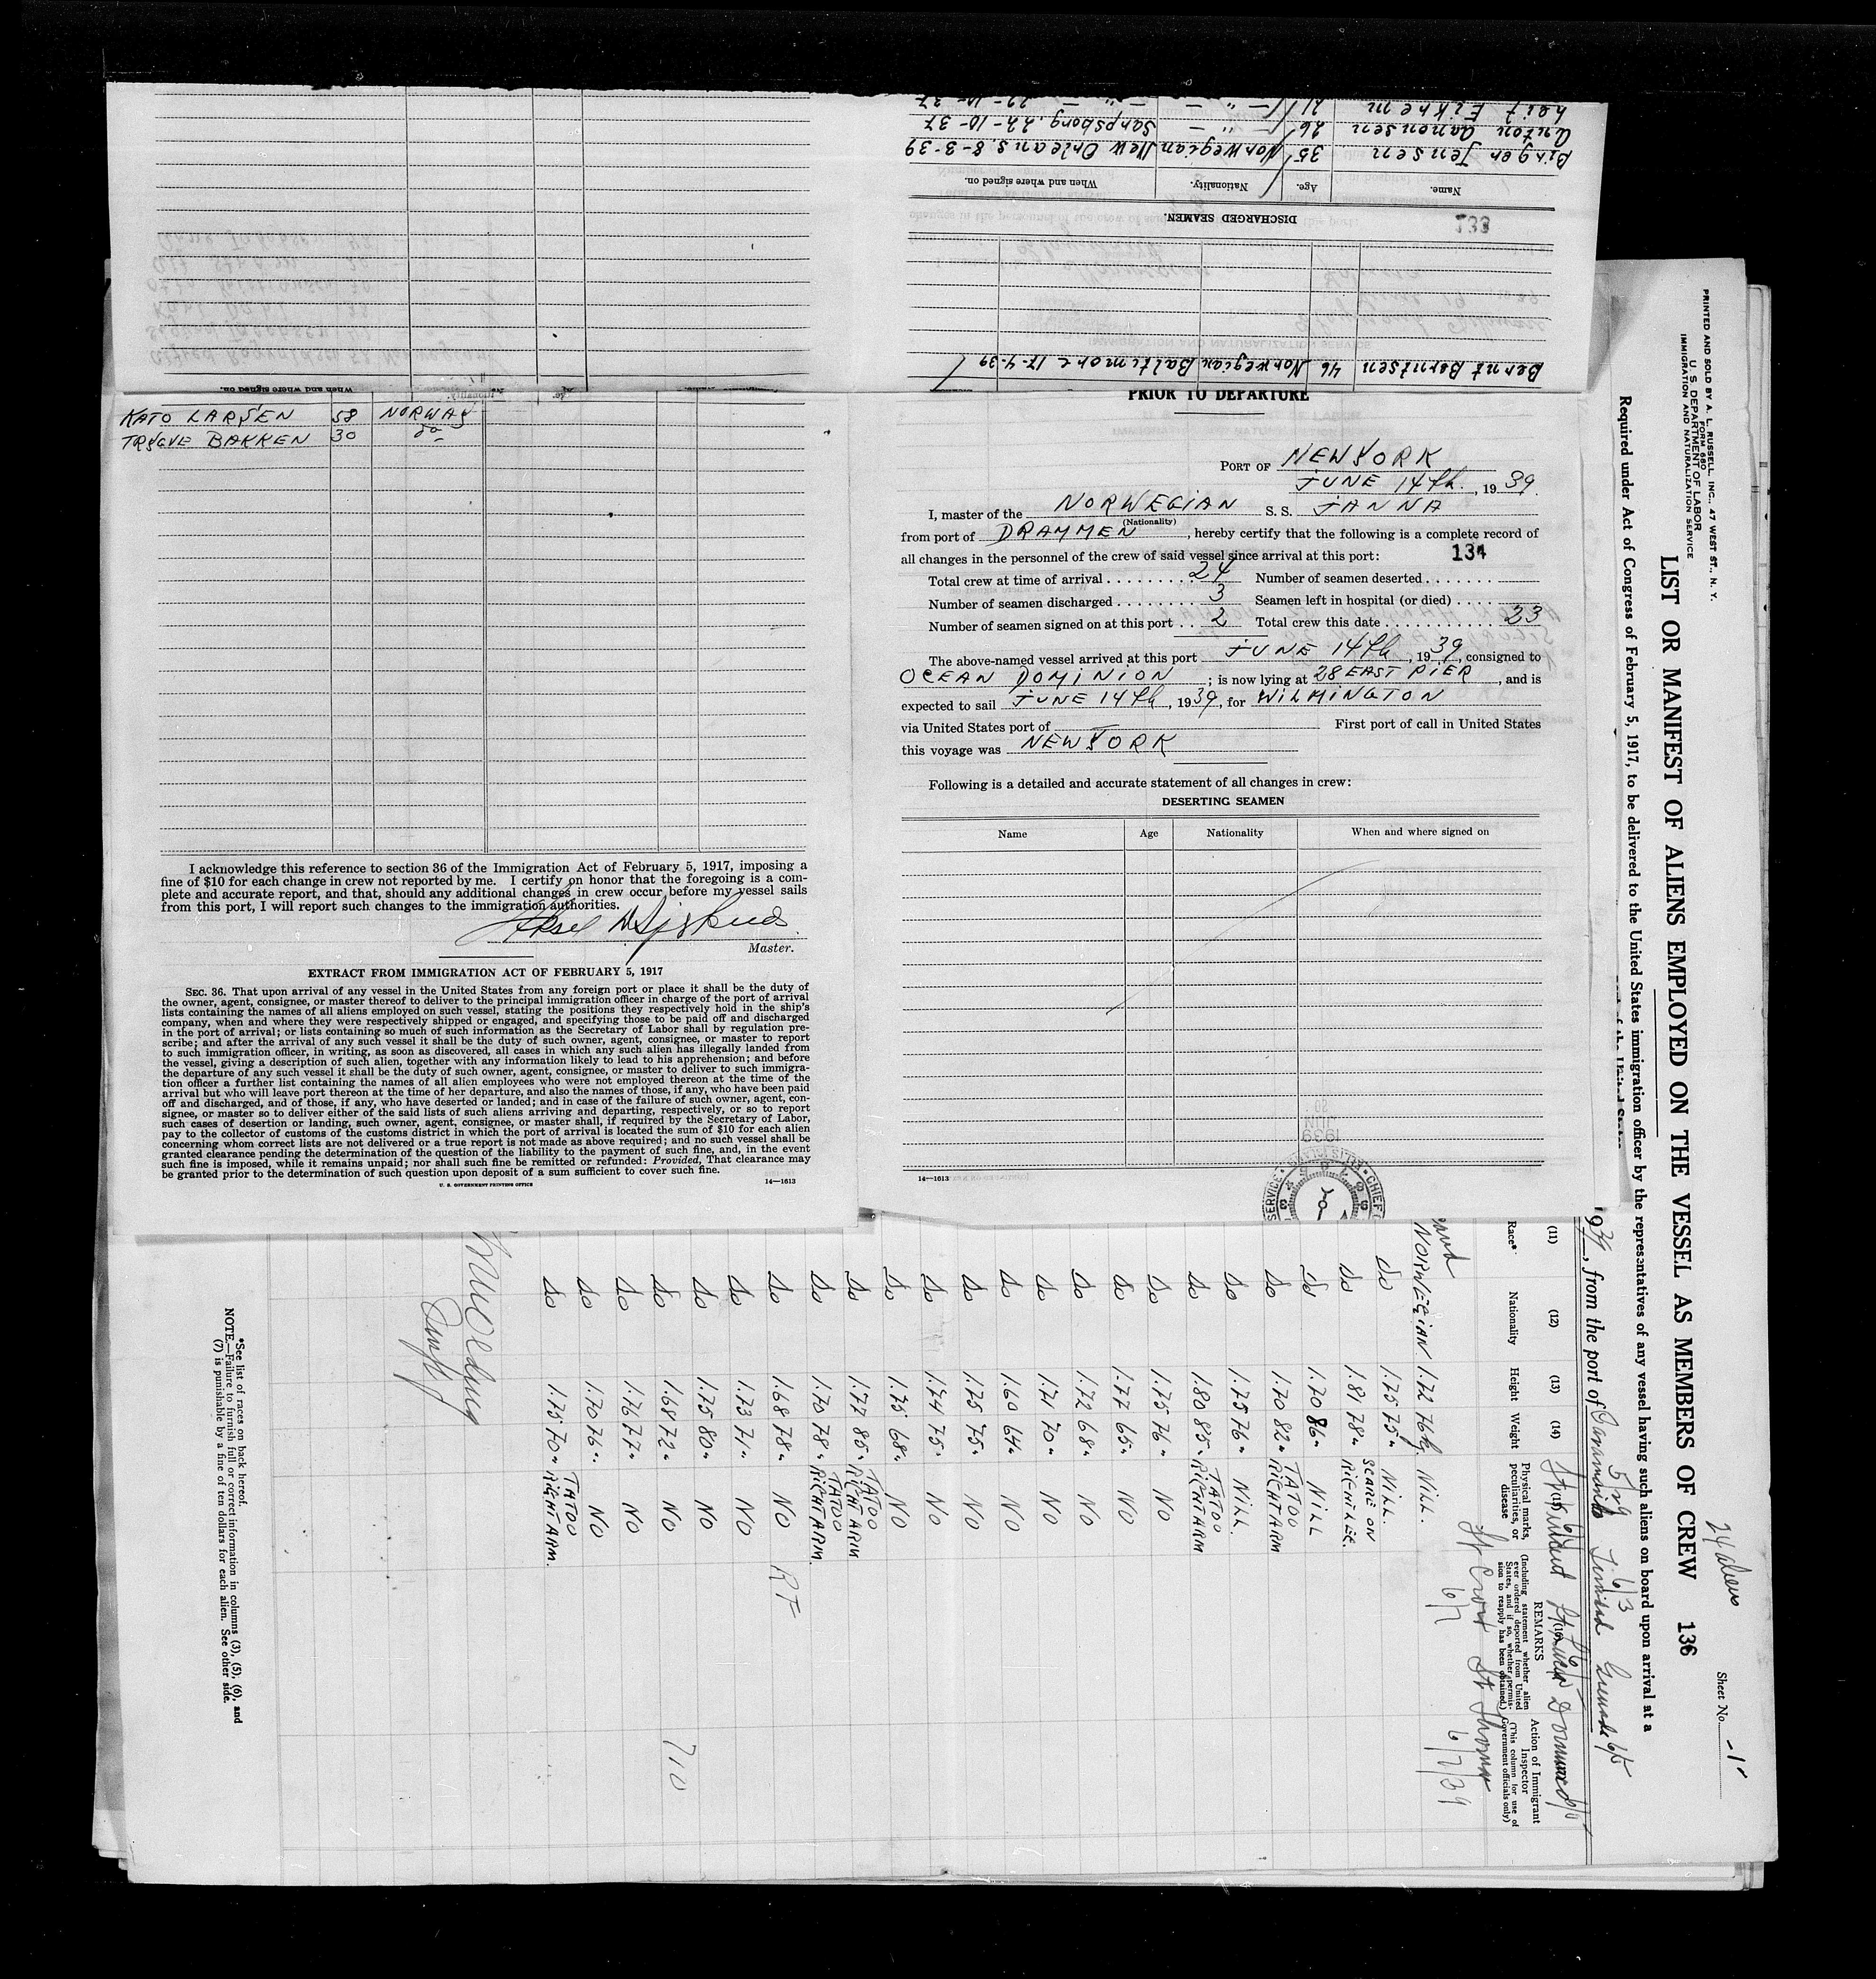 Leif Eiknem 21 — " — — " — 22-10-37
Anton Aanensen 26 — " — Sarpsborg. 22-10-37
Birger Jensen 35 Norwegian New Orleans. 8-3-39
Name. Age. Nationality. When and where signed on.
DISCHARGED SEAMEN.
133
Bernt Berntsen 46 Norwegian Baltimore 17-4-39
When and where signed on.
KATO LARSEN 58 NORWAY
TRYGVE BAKKEN 30 do
I acknowledge this reference to section 36 of the Immigration Act of February 5, 1917, imposing a
fine of $10 for each change in crew not reported by me. I certify on honor that the foregoing is a com-
plete and accurate report, and that, should any additional changes in crew occur before my vessel sails
from this port, I will report such changes to the immigration authorities.
Master.
EXTRACT FROM IMMIGRATION ACT OF FEBRUARY 5, 1917
SEC. 36. That upon arrival of any vessel in the United States from any foreign port or place it shall be the duty of
the owner, agent, consignee, or master thereof to deliver to the principal immigration officer in charge of the port of arrival
lists containing the names of all aliens employed on such vessel, stating the positions they respectively hold in the ship's
company, when and where they were respectively shipped or engaged, and specifying those to be paid off and discharged
in the port of arrival; or lists containing so much of such information as the Secretary of Labor shall by regulation pre-
scribe; and after the arrival of any such vessel it shall be the duty of such owner, agent, consignee, or master to report
to such immigration officer, in writing, as soon as discovered, all cases in which any such alien has illegally landed from
the vessel, giving a description of such alien, together with any information likely to lead to his apprehension; and before
the departure of any such vessel it shall be the duty of such owner, agent, consignee, or master to deliver to such immigra-
tion officer a further list containing the names of all alien employees who were not employed thereon at the time of the
arrival but who will leave port thereon at the time of her departure, and also the names of those, if any, who have been paid
off and discharged, and of those, if any, who have deserted or landed; and in case of the failure of such owner, agent, con-
signee, or master so to deliver either of the said lists of such aliens arriving and departing, respectively, or so to report
such cases of desertion or landing, such owner, agent, consignee, or master shall, if required by the Secretary of Labor,
pay to the collector of customs of the customs district in which the port of arrival is located the sum of $10 for each alien
concerning whom correct lists are not delivered or a true report is not made as above required; and no such vessel shall be
granted clearance pending the determination of the question of the liability to the payment of such fine, and, in the event
such fine is imposed, while it remains unpaid; nor shall such fine be remitted or refunded: Provided, That clearance may
be granted prior to the determination of such question upon deposit of a sum sufficient to cover such fine.
U. S. GOVERNMENT PRINTING OFFICE 14—1613
PRIOR TO DEPARTURE
PORT OF NEW YORK
JUNE 14th., 1939.
I, master of the NORWEGIAN S. S. JANNA
(Nationality)
from port of DRAMMEN, hereby certify that the following is a complete record of
all changes in the personnel of the crew of said vessel since arrival at this port: 134
Total crew at time of arrival 24 Number of seamen deserted
Number of seamen discharged 3 Seamen left in hospital (or died)
Number of seamen signed on at this port 2 Total crew this date 23
The above-named vessel arrived at this port JUNE 14th, 1939, consigned to
OCEAN DOMINION; is now lying at 28 EAST PIER, and is
expected to sail JUNE 14th, 1939, for WILMINGTON
via United States port of First port of call in United States
this voyage was NEW YORK
Following is a detailed and accurate statement of all changes in crew:
DESERTING SEAMEN
Name Age Nationality When and where signed on
14—1613
1939
JUN
20
PRINTED AND SOLD BY A. L. RUSSELL, INC., 47 WEST ST., N. Y.
FORM 680
U. S. DEPARTMENT OF LABOR
IMMIGRATION AND NATURALIZATION SERVICE
24 aliens
Sheet No. -1-
LIST OR MANIFEST OF ALIENS EMPLOYED ON THE VESSEL AS MEMBERS OF CREW 136
Required under Act of Congress of February 5, 1917, to be delivered to the United States immigration officer by the representatives of any vessel having such aliens on board upon arrival at a
5/29 6/3
1939, from the port of Trinidad Grenada 6/5
(11) (12) (13) (14)
Race* Nationality Height Weight Physical marks, peculiarities, or disease
REMARKS
(Including statement whether alien ever ordered deported from United States, and if so, whether permission to reapply has been obtained.)
Action of Immigrant Inspector
(This column for use of Government officials only)
St Croix St Thomas
6/7 6/7/39
NORWEGIAN 1.72 76 kg. NILL.
do 1.75 75 " NILL.
do 1.81 78 " SCARE ON RIGHT LEG.
do 1.70 86 " NILL
do 1.70 82 " TATOO RIGHT ARM
do 1.75 76 " NILL.
do 1.80 85 " TATOO RIGHT ARM
do 1.75 76 " NO
do 1.77 65 " NO
do 1.72 68 " NO
do 1.71 70 " NO
do 1.60 64 " NO
do 1.75 75 " NO
do 1.74 75 " NO
do 1.75 68 " NO
do 1.77 85 " TATOO RIGHT ARM
do 1.70 78 " TATOO RIGHT ARM.
do 1.68 78 " NO RF
do 1.73 71 " NO
do 1.75 80 " NO
do 1.68 72 " NO 710
do 1.76 77 " NO
do 1.70 76 " NO
do 1.75 70 " TATOO RIGHT ARM.
*See list of races on back hereof.
NOTE.—Failure to furnish full or correct information in columns (3), (5), (6), and
(7) is punishable by a fine of ten dollars for each alien. See other side.